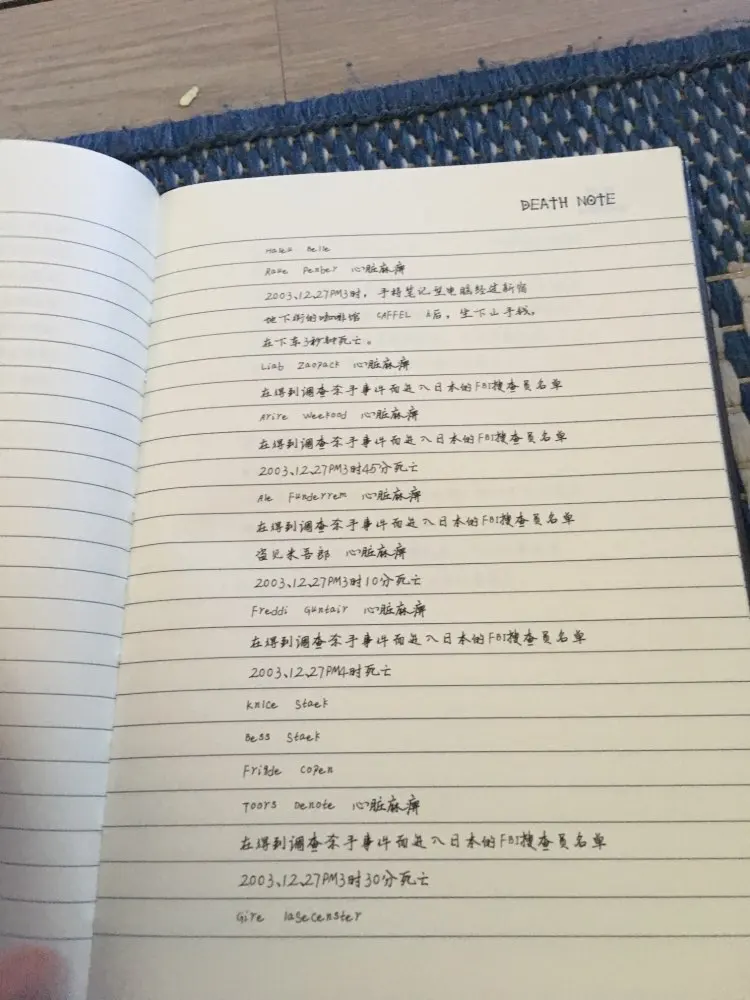 DEATH NOTE
Haley Belle
Raye Penber 心脏麻痹
2003、12、27PM3时，手持笔记型电脑经过新宿
地下街的咖啡馆 CAFFEL 后，坐下山手线，
在下车3秒钟死亡。
Liab Zaopack 心脏麻痹
在得到调查杀手事件而进入日本的FBI搜查员名单
Arire Weekood 心脏麻痹
在得到调查杀手事件而进入日本的FBI搜查员名单
2003、12、27PM3时45分死亡
Ale Funderrem 心脏麻痹
在得到调查杀手事件而进入日本的FBI搜查员名单
盗见米吾郎 心脏麻痹
2003、12、27PM3时10分死亡
Freddi Guntair 心脏麻痹
在得到调查杀手事件而进入日本的FBI搜查员名单
2003、12、27PM4时死亡
Knice Staek
Bess Staek
Frigde Copen
Toors Denote 心脏麻痹
在得到调查杀手事件而进入日本的FBI搜查员名单
2003、12、27PM3时30分死亡
Gire lasecenster